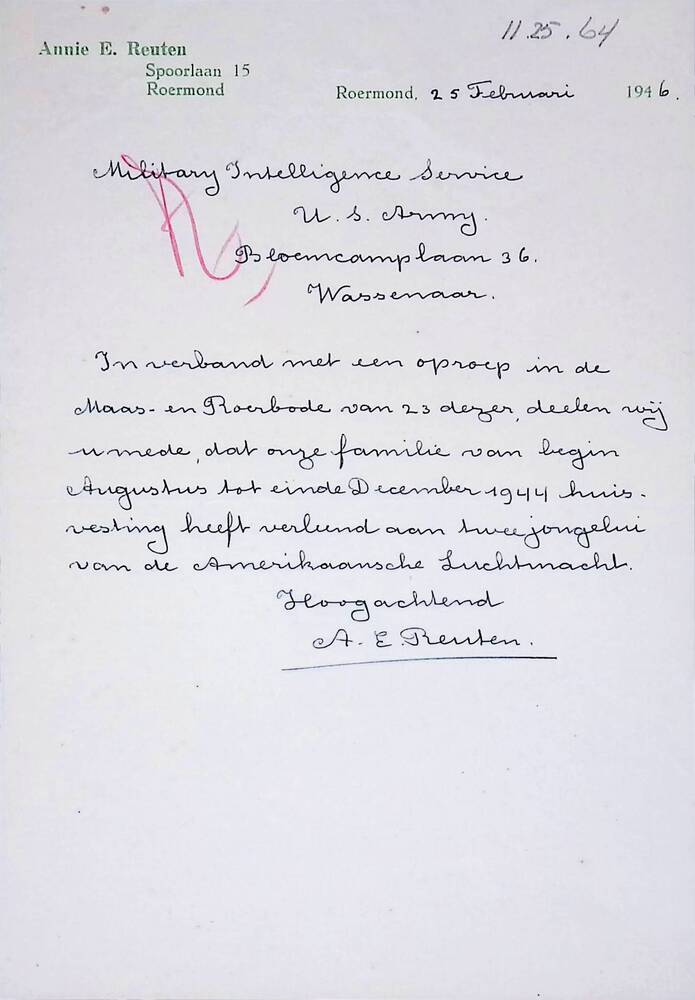 11.25.64
Annie E. Reuten
Spoorlaan 15
Roermond
Roermond, 25 Februari 1946.
Military Intelligence Service
U. S. Army.
Bloemcamplaan 36.
Wassenaar.
In verband met een oproep in de
Maas- en Roerbode van 23 dezer, deelen wij
u mede, dat onze familie van begin
Augustus tot einde December 1944 huis-
vesting heeft verleend aan twee jongelui
van de Amerikaansche Luchtmacht.
Hoogachtend
A. E. Reuten.